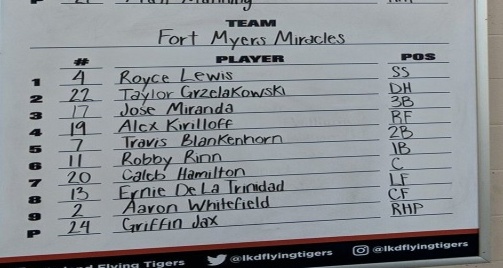 TEAM
Fort Myers Miracles
# PLAYER POS
1 4 Royce Lewis SS
2 22 Taylor Grzelakowski DH
3 17 Jose Miranda 3B
4 19 Alex Kirilloff RF
5 7 Travis Blankenhorn 2B
6 11 Robby Rinn 1B
7 20 Caleb Hamilton C
8 13 Ernie De La Trinidad LF
9 2 Aaron Whitefield CF
P 24 Griffin Jax RHP
Flying Tigers @lkdflyingtigers @lkdflyingtigers